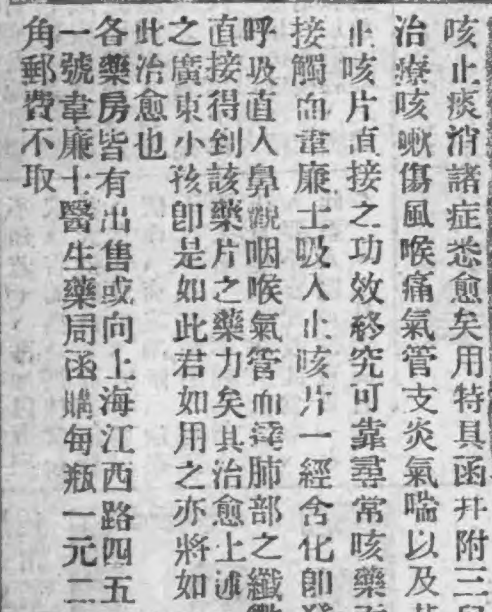 咳止痰消諸症悉愈矣用特具函幷附三
治療咳嗽傷風喉痛氣管支炎氣喘以及
止咳片直接之功效終究可靠尋常咳藥
接觸而韋廉士吸入止咳片一經含化卽
呼吸直入鼻觀咽喉氣管而達肺部之纖
直接得到該藥片之藥力矣其治愈上述
之廣東小孩卽是如此君如用之亦將如
此治愈也
各藥房皆有出售或向上海江西路四五
一號韋廉士醫生藥局函購每瓶一元二
角郵費不取